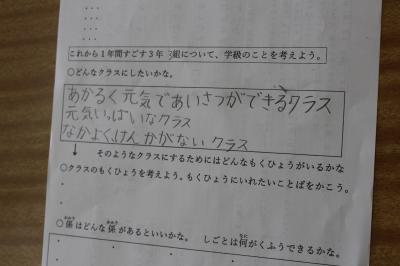 これから1年間すごす3年 組について、学級のことを考えよう。
○どんなクラスにしたいかな。
あかるく元気であいさつができるクラス
元気いっぱいなクラス
なかよく、けんかがない クラス
↓ そのようなクラスにするためにはどんなもくひょうがいるかな
○クラスのもくひょうを考えよう。もくひょうにいれたいことばをかこう。
○係はどんな係があるといいかな。 しごとは何がくふうできるかな。